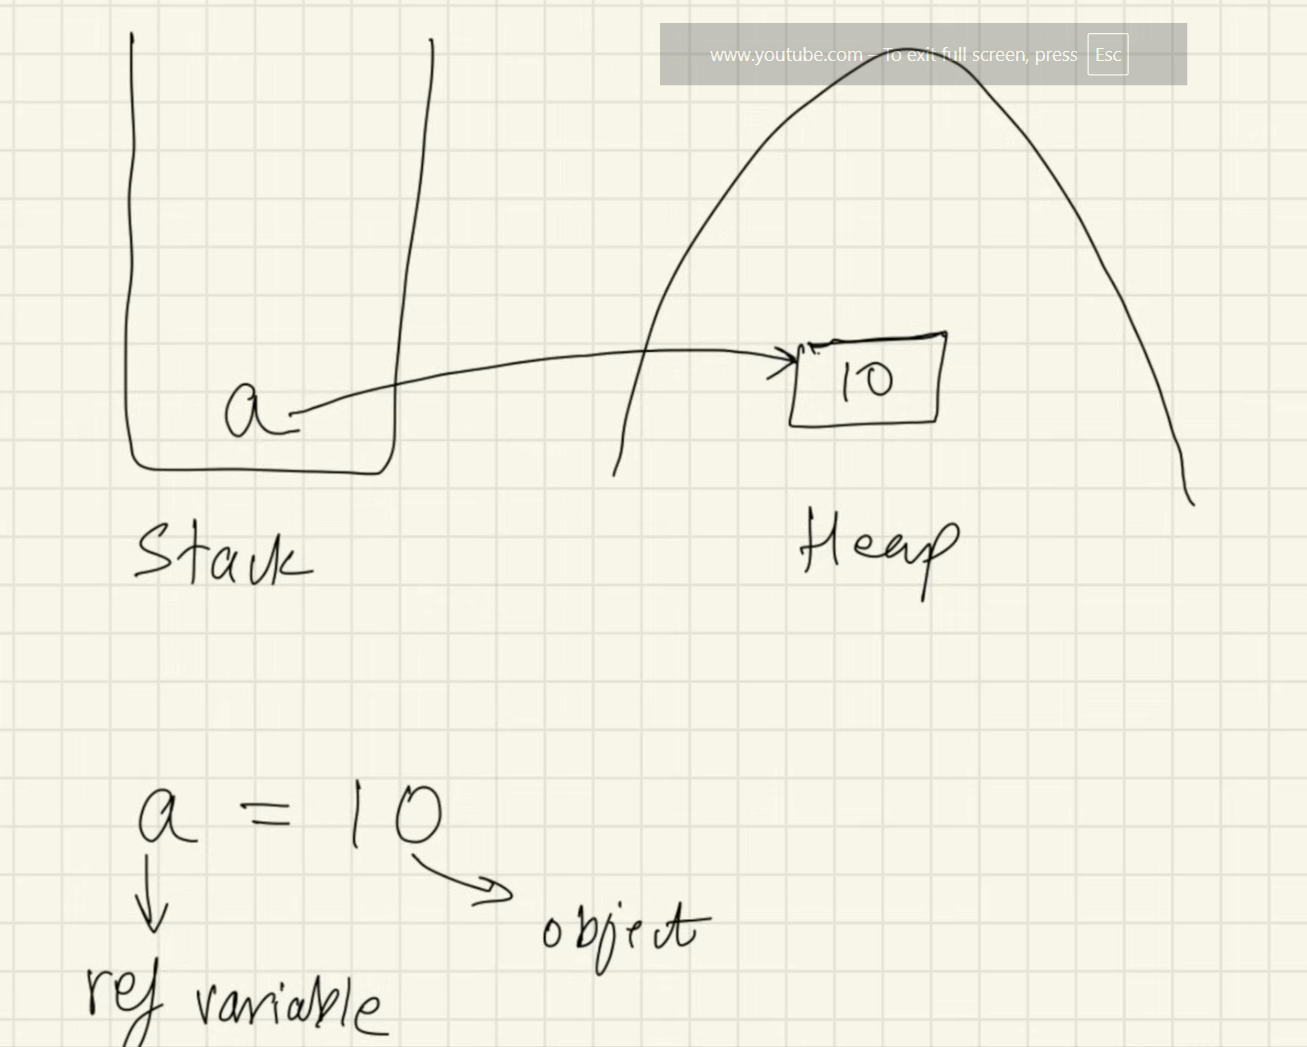 www.youtube.com – To exit full screen, press Esc
a
10
Stack
Heap
a = 10
object
ref variable